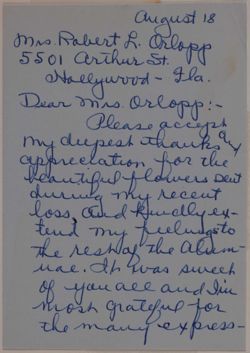 August 18
Mrs. Robert L. Orlopp
5501 Arthur St.
Hollywood - Fla.
Dear Mrs. Orlopp:-
Please accept
my deepest thanks &
appreciation for the
beautiful flowers sent
during my recent
loss, and kindly ex-
tend my feelings to
the rest of the Alum-
nae. It was sweet
of you all and I'm
most grateful for
the many express-